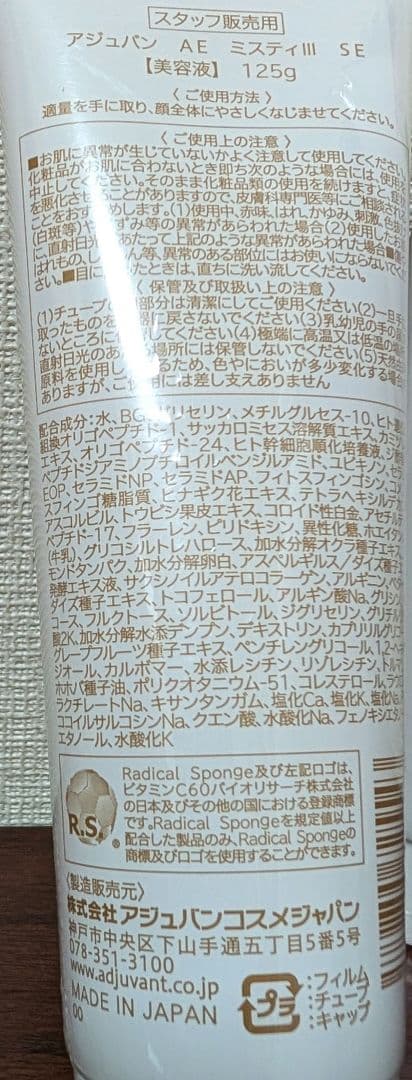 スタッフ販売用
アジュバン AE ミスティⅢ SE
【美容液】 125g
〈 ご使用方法 〉
適量を手に取り、顔全体にやさしくなじませてください。
〈 ご使用上の注意 〉
■お肌に異常が生じていないかよく注意して使用してください。
化粧品がお肌に合わないとき即ち次のような場合には、使用を
中止してください。そのまま化粧品類の使用を続けますと、症状
を悪化させることがありますので、皮膚科専門医等にご相談される
ことをおすすめします。(1)使用中、赤味、はれ、かゆみ、刺激、色抜け
(白斑等)や ずみ等の異常があらわれた場合(2)使用した
に、直射日光 あたって上記のような異常があらわれた場合■傷
はれもの、し ん等、異常のある部位にはお使いにならないで
さい。■目に ったときは、直ちに洗い流してください。
〈 保管及び取扱い上の注意 〉
(1)チューブ 部分は清潔にしてご使用ください(2)一旦手
取ったものを 器に戻さないでください(3)乳幼児の手の届
ないところに してください(4)極端に高温又は低温の場所
直射日光のあ 場所には保管しないでください(5)天然
原料を使用し るため、色やにおいが多少変化する場合
ありますが、ご使用には差し支えありません
配合成分:水、BG、グリセリン、メチルグルセス-10、ヒト遺
組換オリゴペプチド-1、サッカロミセス溶解質エキス、カミツ
エキス、オリゴペプチド-24、ヒト幹細胞順化培養液、ジ酢
ペプチドジアミノブチロイルベンジルアミド、ユビキノン、セラ
EOP、セラミドNP、セラミドAP、フィトスフィンゴシン、コメ
スフィンゴ糖脂質、ヒナギク花エキス、テトラヘキシルデカ
アスコルビル、トウビシ果皮エキス、コロイド性白金、アセチルテ
ペプチド-17、フラーレン、ピリドキシン、異性化糖、ホエイタン
(牛乳)、グリコシルトレハロース、加水分解オクラ種子エキス、
モンドタンパク、加水分解卵白、アスペルギルス/ダイズ種子エ
発酵エキス液、サクシノイルアテロコラーゲン、アルギニン、ベタ
ダイズ種子エキス、トコフェロール、アルギン酸Na、グリシン
コース、フルクトース、ソルビトール、ジグリセリン、グリチル
酸2K、加水分解水添デンプン、デキストリン、カプリリルグリコ
グレープフルーツ種子エキス、ペンチレングリコール、1,2-ヘキ
ジオール、カルボマー、水添レシチン、リゾレシチン、トルマリ
ホホバ種子油、ポリクオタニウム-51、コレステロール、ラウロ
ラクチレートNa、キサンタンガム、塩化Ca、塩化K、塩化Na、
ココイルサルコシンNa、クエン酸、水酸化Na、フェノキシエタノ
エタノール、水酸化K
R.S.®
Radical Sponge及び左記ロゴは、
ビタミンC60バイオリサーチ株式会社
の日本及びその他の国における登録商標
です。Radical Spongeを規定値以上
配合した製品のみ、Radical Spongeの
商標及びロゴを使用することができます。
〈製造販売元〉
株式会社アジュバンコスメジャパン
神戸市中央区下山手通五丁目5番5号
078-351-3100
www.adjuvant.co.jp
MADE IN JAPAN
00
プラ
:フィルム
:チューブ
:キャップ